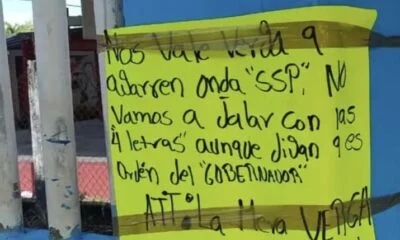 Nos Vale Verda q
agarren onda "SSP", No
Vamos a Jalar con las
"4 letras" aunque digan q es
Orden del "GOBERNADOR"
ATT: La Mera VERGA